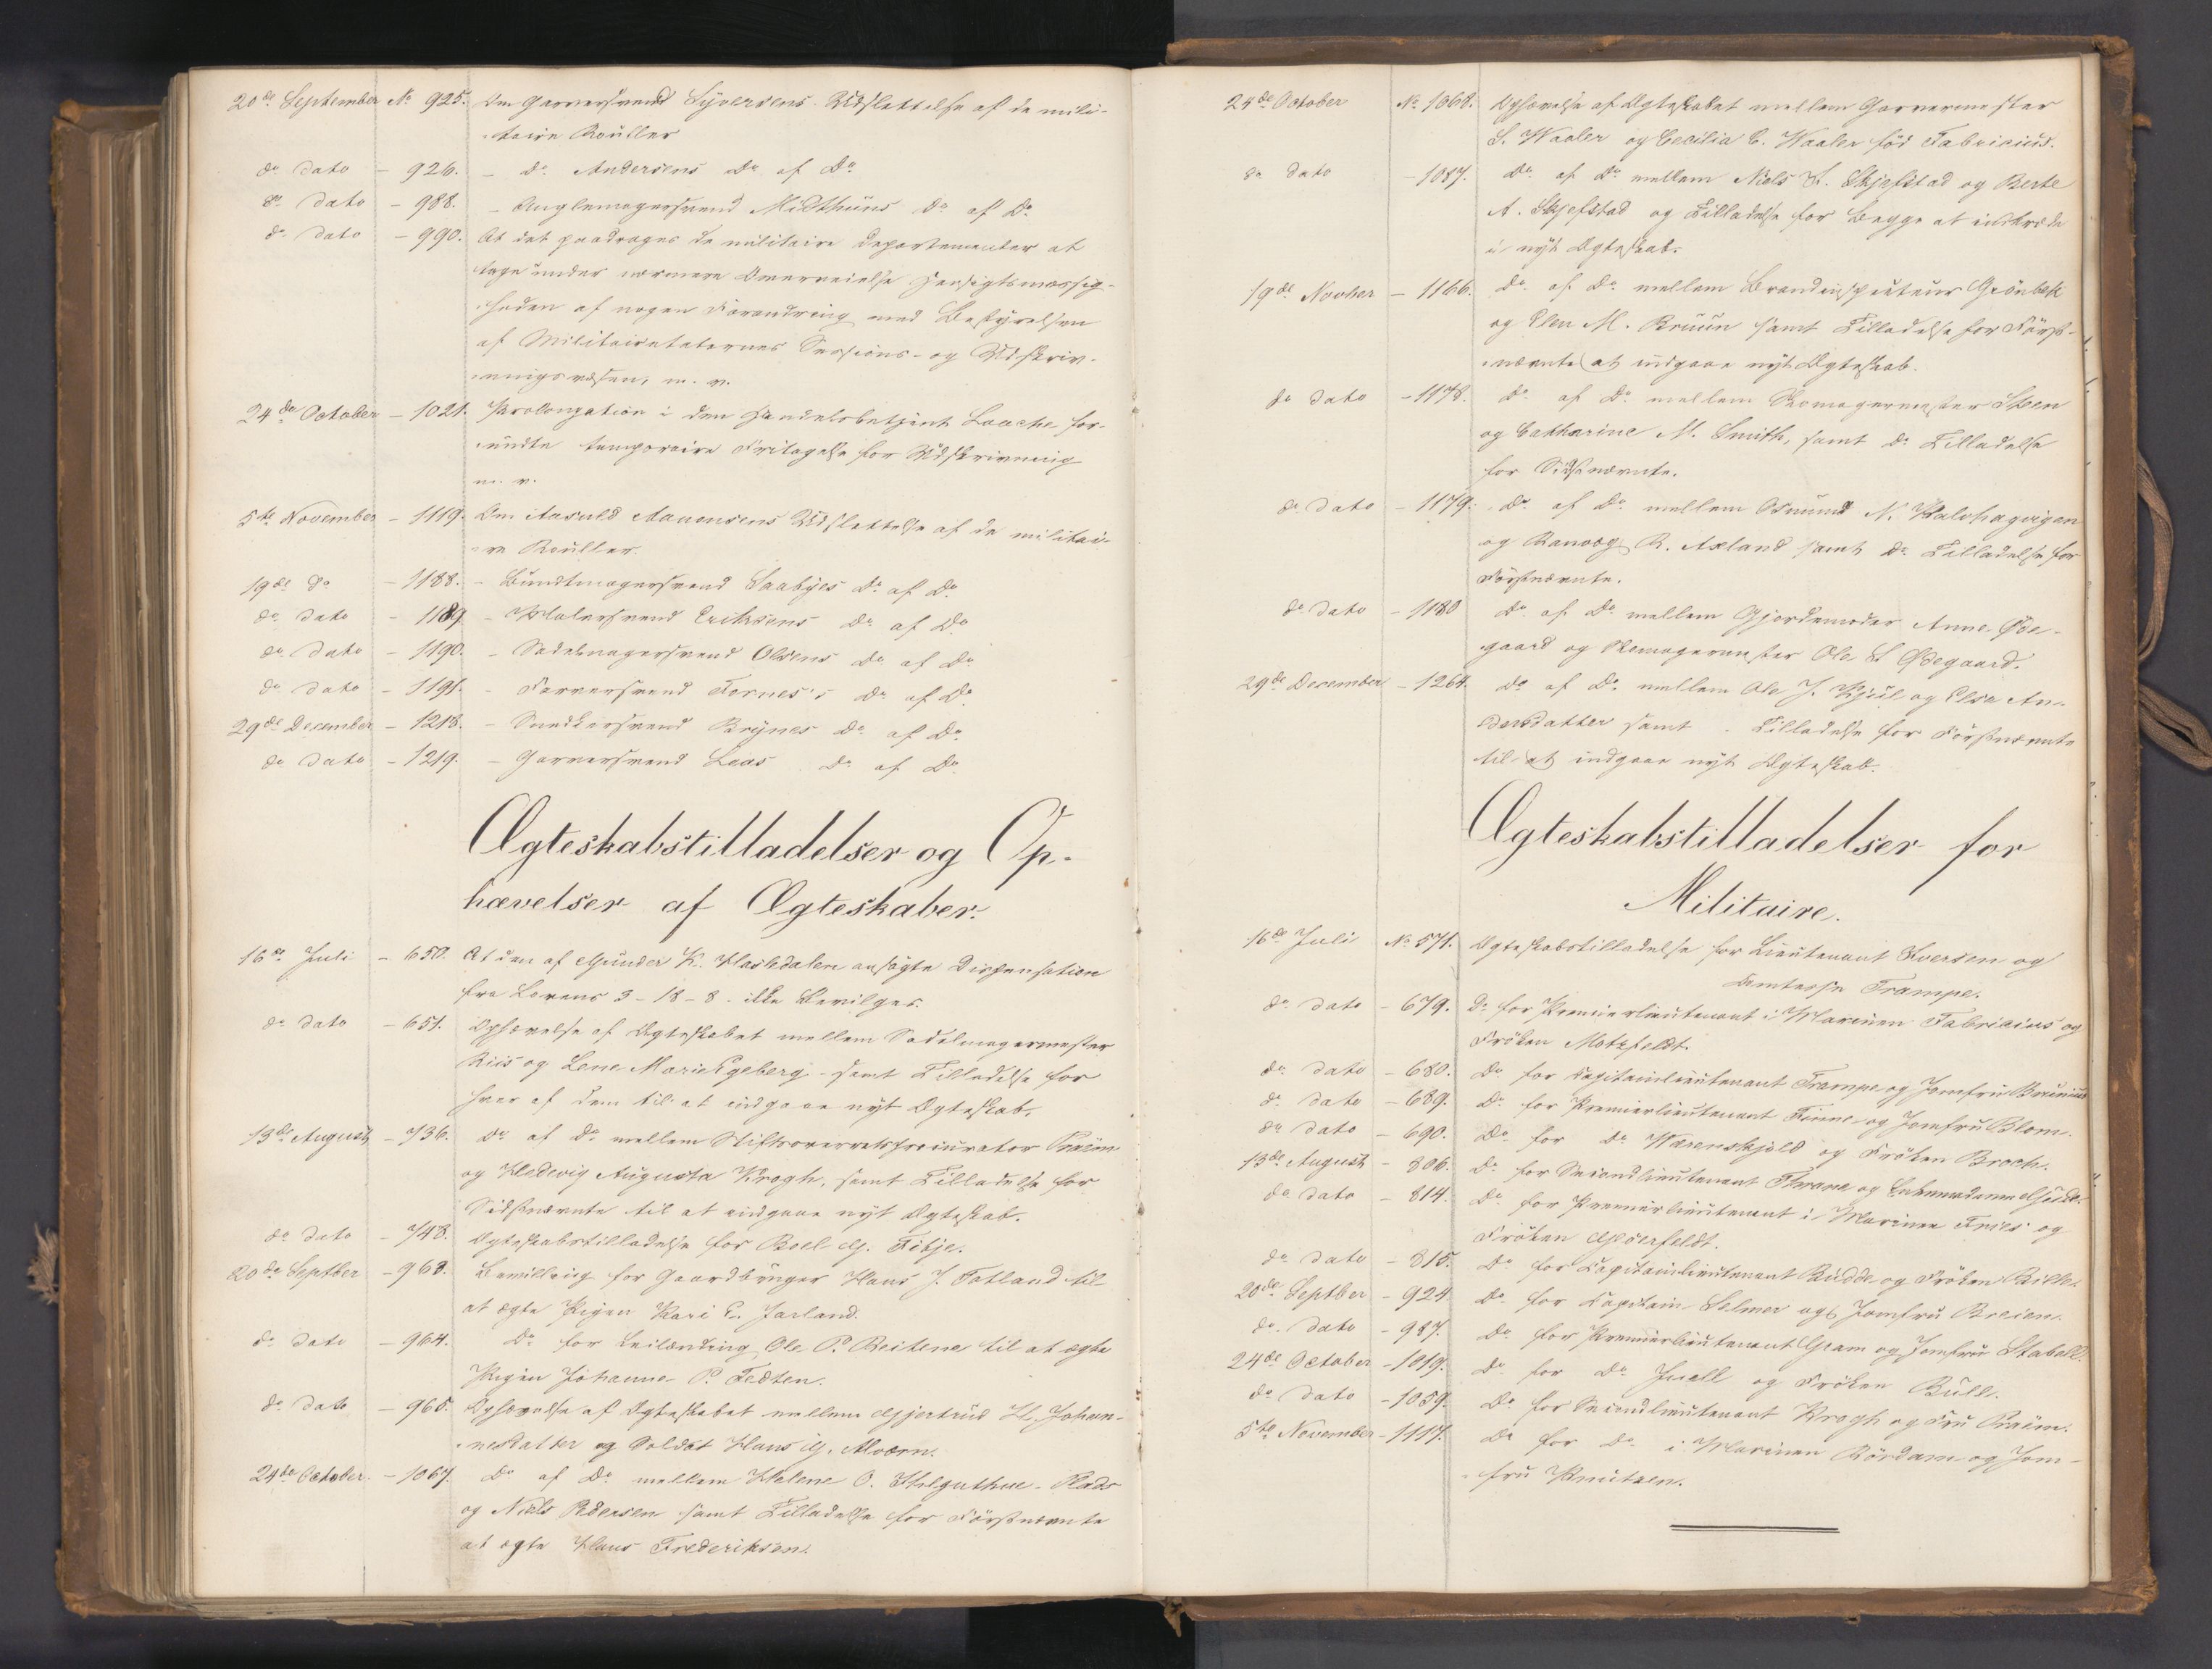 20de September No 925. Om Garversvend Syversens Udslettelse af de mili-
taire Rouller
do dato – 926. – Do Andersens Do af Do
do dato – 988. – Buglemagersvend Milthuns Do af Do
do dato – 990. At det paadrages de militaire Departementer at
tage under nærmere Overveielse Hensigtsmæssig-
heden af nogen Forandring med Bestyrelsen
af Militairetaternes Sessions- og Udskriv-
ningsvæsen, m. v.
24de October – 1021. Prolongation i den Handelsbetjent Laache for-
undte temporaire Fritagelse for Udskrivning
m. v.
5te November – 1119. Om Aasuld Aanensens Udslettelse af de militai-
re Rouller.
19de do – 1188. – Bundtmagersvend Saabyes Do af Do
do dato – 1189 – Malersvend Eriksens Do af Do
do dato – 1190. – Sadelmagersvend Olsens Do af Do
do dato – 1191. – Farversvend Fornes's Do af Do
29de December – 1218. – Snedkersvend Brynes Do af Do
do dato – 1219. – Garversvend Laas Do af Do
Ægteskabstilladelser og Op-
hævelser af Ægteskaber.
16de Juli – 650. At den af Gunder K. Hasledalen ansøgte Dispensation
fra Lovens 3-18-8. ikke Bevilges.
do dato – 651. Ophævelse af Ægteskabet mellem Sadelmagermester
Riis og Lene Marie Egeberg – samt Tilladelse for
hver af dem til at indgaae nyt Ægteskab.
13de August – 736. Do af Do mellem Stiftsoverretsprocurator Praëm
og Hedevig Augusta Krogh, samt Tilladelse for
Sidstnævnte til at indgaae nyt Ægteskab.
do dato – 748. Ægteskabstilladelse for Boel G. Fitje.
20de Septber – 963. Bevilling for Gaardbruger Hans J. Fatland til
at ægte Pigen Kari E. Jarland.
do dato – 964. Do for Leilænding Ole P. Reitene til at ægte
Pigen Johanne P. Tedten.
do dato – 965. Ophævelse af Ægteskabet mellem Gjertrud H. Johan-
nesdatter og Soldat Hans G. Alværn.
24de October. – 1067. Do af Do mellem Helene O. Helguthue-Plads
og Niels Pedersen samt Tilladelse for Førstnævnte
at ægte Hans Frederiksen.
24de October No 1068. Ophævelse af Ægteskabet mellem Garvermester
S. Waaler og Cecilia C. Waaler fød Fabricius.
do dato – 1087. Do af Do mellem Niels S. Skjefstad og Berte
A. Skjefstad og Tilladelse for Begge at indtræde
i nyt Ægteskab.
19de Novber – 1166. Do af Do mellem Brandinspecteur Grönbek
og Elen M. Bruun samt Tilladelse for Først-
nævnte at indgaae nyt Ægteskab.
do dato – 1178. Do af Do mellem Skomagermester Steen
og Catharine M. Smith, samt do Tilladelse
for Sidstnævnte.
do dato – 1179. Do af Do mellem Osmund N. Halvhagrigen
og Ranvog R. Axland samt do Tilladelse for
Førstnævnte.
do dato – 1180 Do af Do mellem Gjordemoder Anne Øde-
gaard og Skomagermester Ole L Ødegaard.
29de December – 1264. Do af Do mellem Ole J. Kjul og Elsa An-
dersdatter samt – Tilladelse for Førstnævnte
til at indgaae nyt Ægteskab.
Ægteskabstilladelser for
Militaire.
16de Juli No 571. Ægteskabstilladelse for Lieutenant Iversen og
Comtesse Trampe.
do dato – 679. Do for Premierlieutenant i Marinen Fabricius og
Frøken Motzfeldt.
do dato – 680. Do for Capitainlieutenant Trampe og Jomfru Brunius
do dato – 689. Do for Premierlieutenant Finne og Jomfru Blom.
do dato – 690. Do for Do Wærenskjold og Frøken Broch.
13de August – 806. Do for Secondlieutenant Thrane og Enkemadame Gude.
do dato – 814. Do for Premierlieutenant i Marinen Fries og
Frøken Gederfeldt.
do dato – 815. Do for Capitainlieutenant Budde og Frøken Bille.
20de Septber – 924 Do for Capitain Selmer og Jomfru Breien.
do dato – 987. Do for Premierlieutenant Gram og Jomfru Stabell.
24de October – 1019. Do for Do Juell og Frøken Bull.
do dato – 1059. Do for Secondlieutenant Krogh og Fru Praëm.
5te November – 1117. Do for Do i Marinen Rördam og Jom-
fru Knutzen.